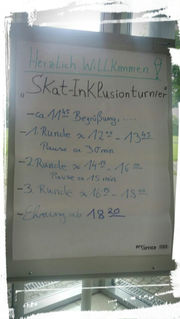 Herzlich Willkommen
"Skat-Inklusionturnier"
- ca 11 45 Begrüßung....
- 1. Runde ≈ 12 - 13 45
Pause ca 30 min
- 2. Runde ≈ 14 - 16
Pause ≈ 15 min
- 3. Runde ≈ 16 - 18
- Ehrung ab 18 30